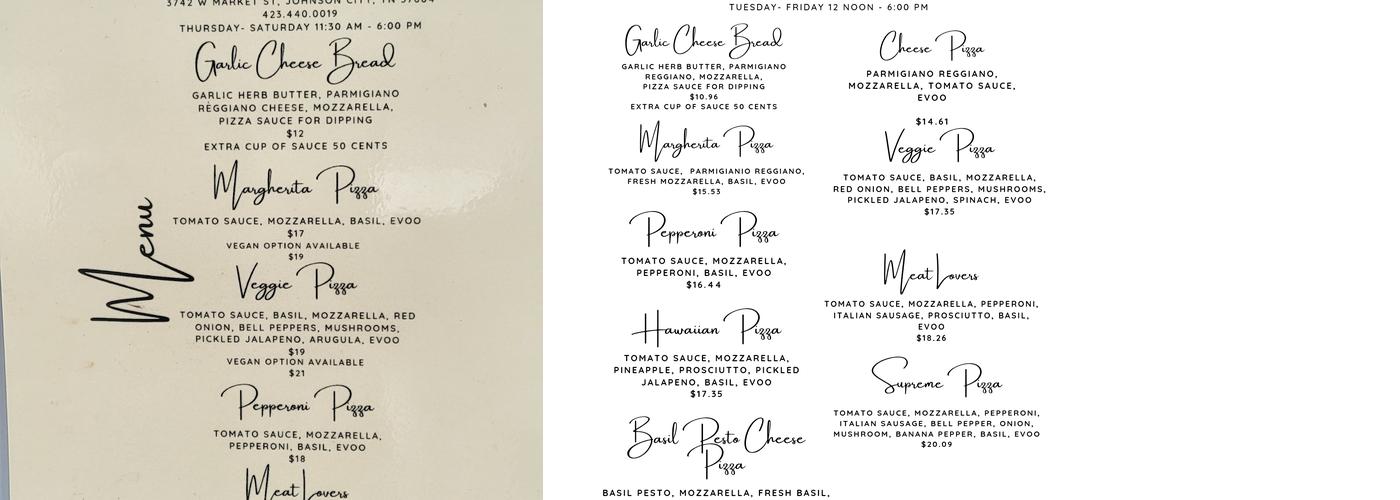 3742 W MARKET ST, JOHNSON CITY, TN 37604
423.440.0019
THURSDAY- SATURDAY 11:30 AM - 6:00 PM
Garlic Cheese Bread
GARLIC HERB BUTTER, PARMIGIANO
REGGIANO CHEESE, MOZZARELLA,
PIZZA SAUCE FOR DIPPING
$12
EXTRA CUP OF SAUCE 50 CENTS
Menu
Margherita Pizza
TOMATO SAUCE, MOZZARELLA, BASIL, EVOO
$17
VEGAN OPTION AVAILABLE
$19
Veggie Pizza
TOMATO SAUCE, BASIL, MOZZARELLA, RED
ONION, BELL PEPPERS, MUSHROOMS,
PICKLED JALAPENO, ARUGULA, EVOO
$19
VEGAN OPTION AVAILABLE
$21
Pepperoni Pizza
TOMATO SAUCE, MOZZARELLA,
PEPPERONI, BASIL, EVOO
$18
Meat Lovers
TUESDAY- FRIDAY 12 NOON - 6:00 PM
Garlic Cheese Bread
GARLIC HERB BUTTER, PARMIGIANO
REGGIANO, MOZZARELLA,
PIZZA SAUCE FOR DIPPING
$10.96
EXTRA CUP OF SAUCE 50 CENTS
Margherita Pizza
TOMATO SAUCE, PARMIGIANIO REGGIANO,
FRESH MOZZARELLA, BASIL, EVOO
$15.53
Pepperoni Pizza
TOMATO SAUCE, MOZZARELLA,
PEPPERONI, BASIL, EVOO
$16.44
Hawaiian Pizza
TOMATO SAUCE, MOZZARELLA,
PINEAPPLE, PROSCIUTTO, PICKLED
JALAPENO, BASIL, EVOO
$17.35
Basil Pesto Cheese
Pizza
BASIL PESTO, MOZZARELLA, FRESH BASIL,
Cheese Pizza
PARMIGIANO REGGIANO,
MOZZARELLA, TOMATO SAUCE,
EVOO
$14.61
Veggie Pizza
TOMATO SAUCE, BASIL, MOZZARELLA,
RED ONION, BELL PEPPERS, MUSHROOMS,
PICKLED JALAPENO, SPINACH, EVOO
$17.35
Meat Lovers
TOMATO SAUCE, MOZZARELLA, PEPPERONI,
ITALIAN SAUSAGE, PROSCIUTTO, BASIL,
EVOO
$18.26
Supreme Pizza
TOMATO SAUCE, MOZZARELLA, PEPPERONI,
ITALIAN SAUSAGE, BELL PEPPER, ONION,
MUSHROOM, BANANA PEPPER, BASIL, EVOO
$20.09